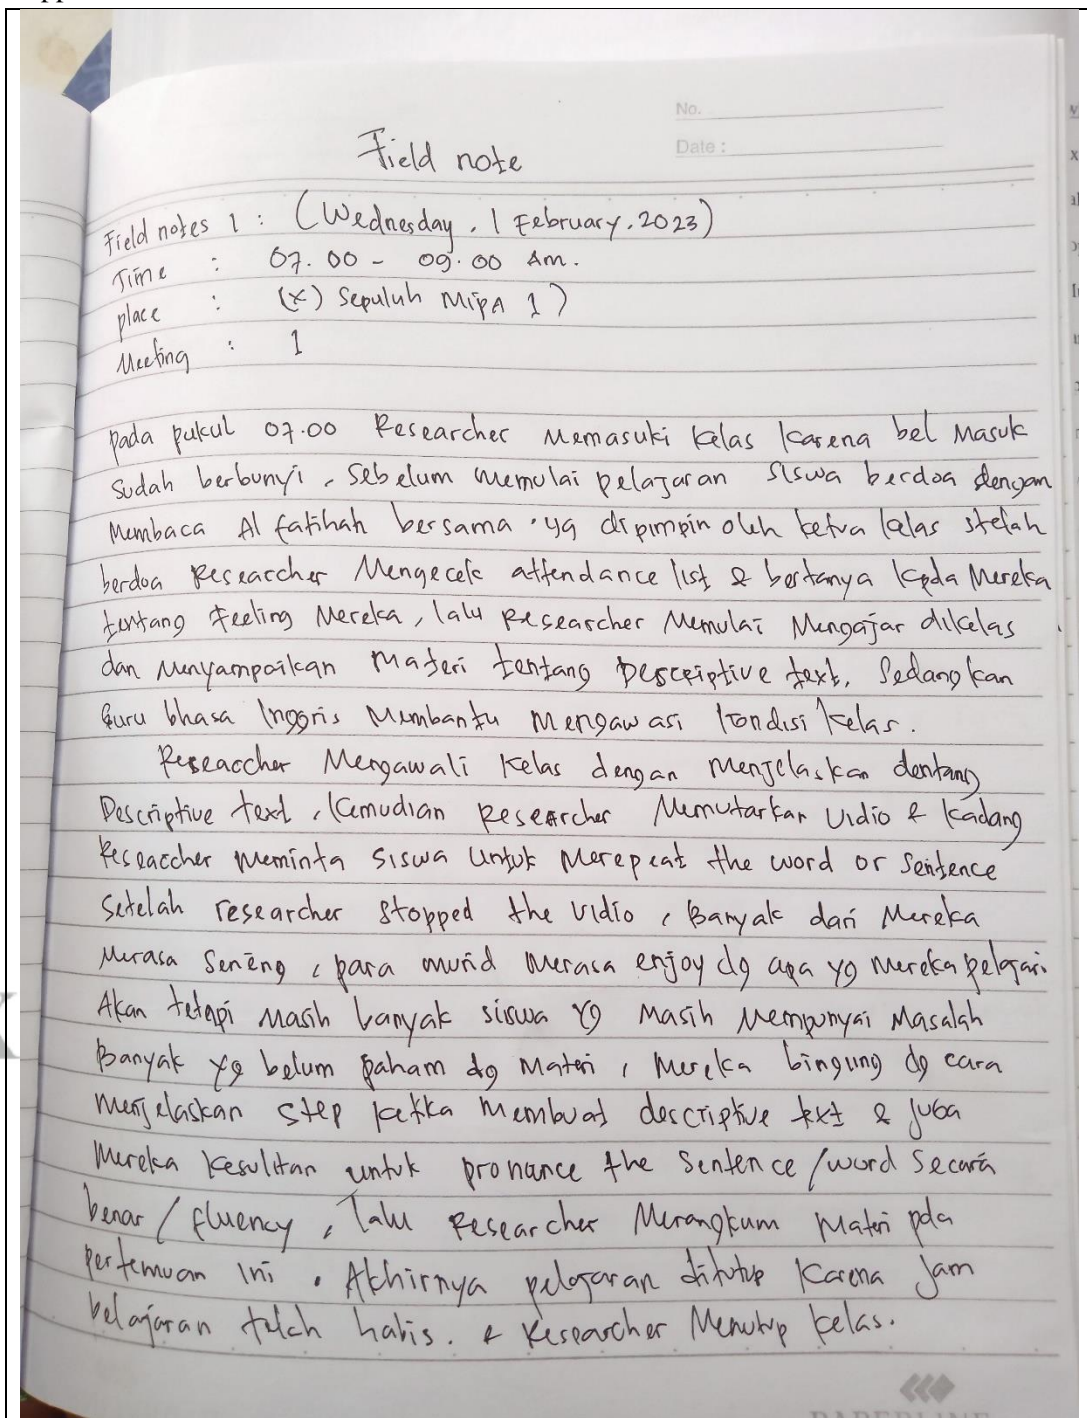 No.
Date :
Field note
Field notes 1 : (Wednesday, 1 February, 2023)
Time : 07.00 - 09.00 Am.
place : (x) Sepuluh MIPA 1)
Meeting : 1
pada pukul 07.00 Researcher Memasuki kelas karena bel Masuk
sudah berbunyi, Sebelum memulai pelajaran siswa berdoa dengan
Membaca Al fatihah bersama yg dipimpin oleh ketua kelas stelah
berdoa Researcher Mengecek attendance list & bertanya kpda Mereka
tentang Feeling Mereka, lalu Researcher Memulai Mengajar dikelas
dan Menyampaikan Materi tentang Descriptive text, Sedangkan
Guru bhasa Inggris Membantu mengawasi kondisi kelas.
Reseaccher Mengawali kelas dengan menjelaskan dentang
Descriptive text, kemudian Researcher Memutarkan Vidio & kadang
Reseaccher meminta siswa untuk Merepeat the word or sentence
Setelah researcher stopped the vidio, Banyak dari Mereka
Merasa Seneng, para murid merasa enjoy dg apa yg mereka pelajari.
Akan tetapi masih banyak siswa yg masih Mempunyai Masalah
Banyak yg belum paham dg materi, Mereka bingung dg cara
menjelaskan step ketika membuat descriptive text & juga
Mereka kesulitan untuk pronance the sentence/word secara
benar / fluency, lalu Researcher Merangkum Materi pda
pertemuan ini. Akhirnya pelajaran ditutup karena jam
belajaran telah habis. & Researcher Menutup kelas.